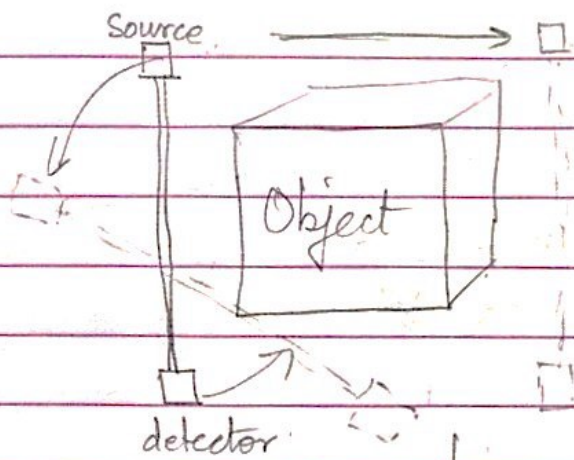 Source
Object
detector